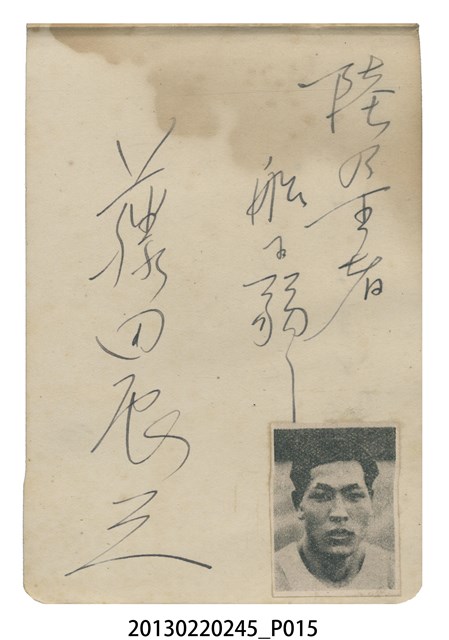 陸の王者
船に弱し
藤田辰三
20130220245_P015